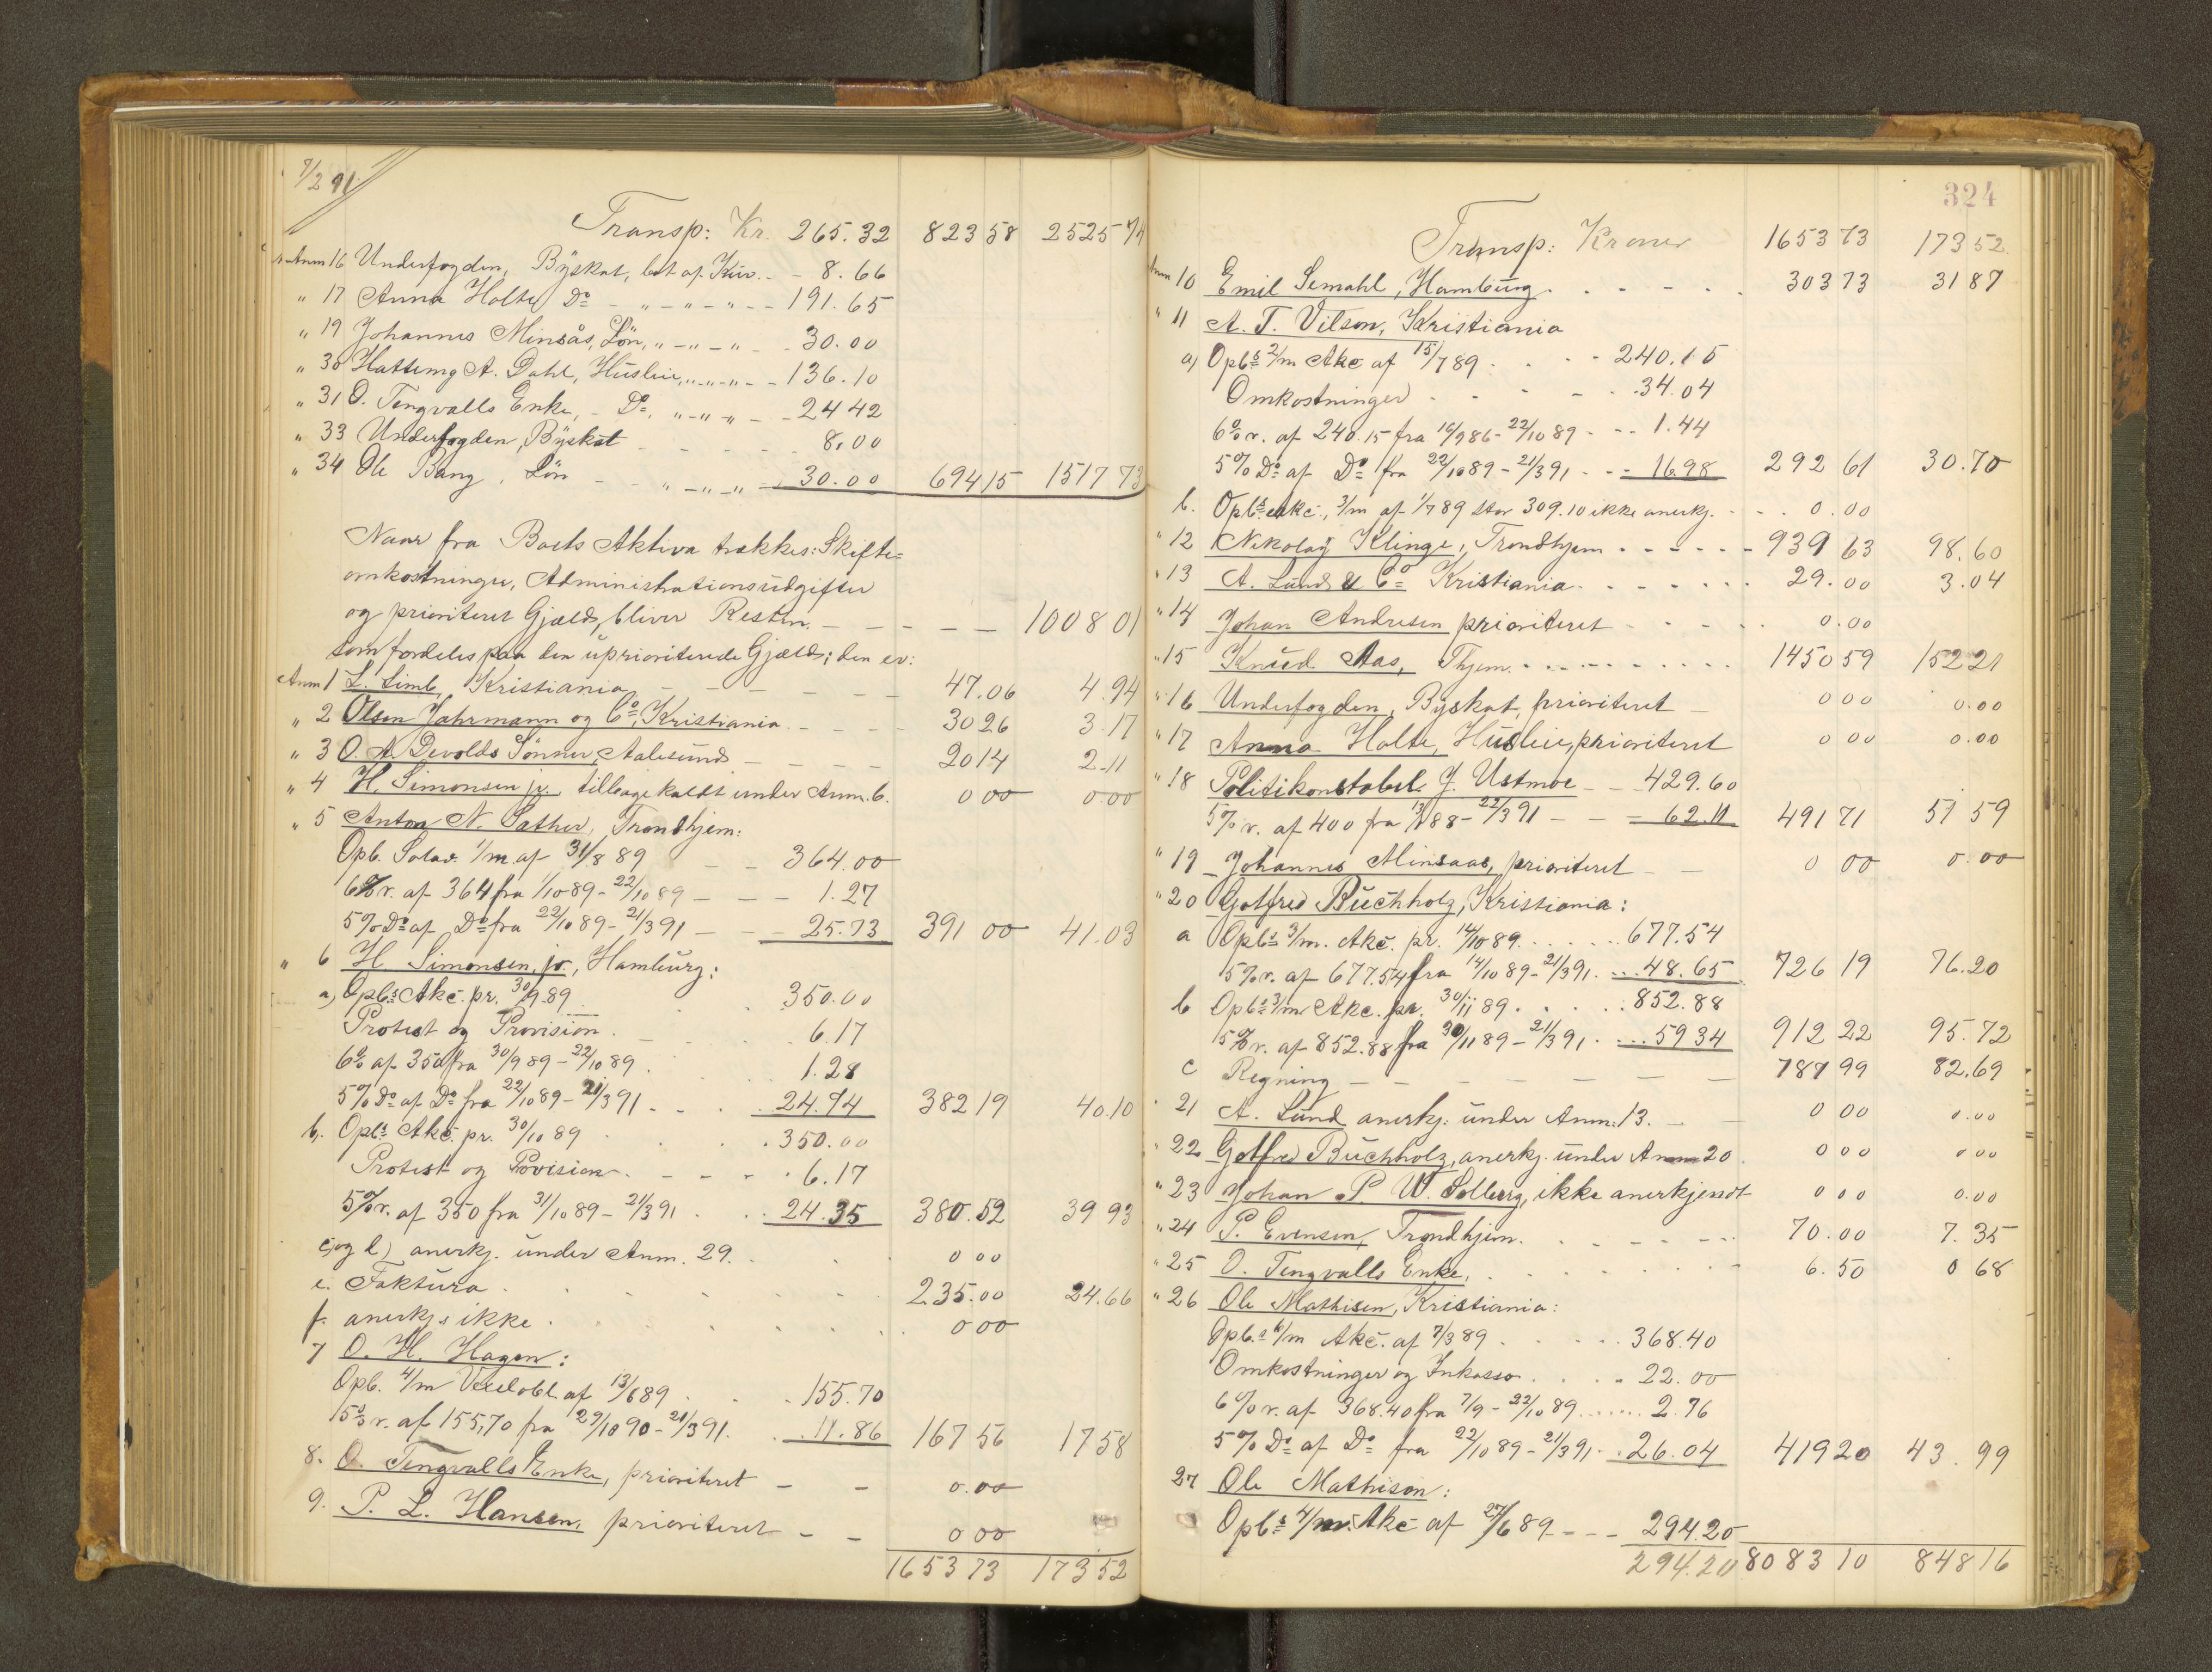 7/2 91.
Transp: Kr. 265.32 823 58 2525 74
Anm 16 Underfogden, Byskat, bet af Kur. - - 8.66
" 17 Anna Holte Do - " - " - " - - 191.65
" 19 Johannes Minsås, Løn, " - " - " - - 30.00
" 30 Hattemg A. Dahl, Husleie, " - " - " - - 136.10
" 31 O. Tengvalls Enke, - Do. " - " - " - - 24 42
" 33 Underfogden, Byskat - - - - - 8.00
" 34 Ole Bang, Løn - - " - " - " - 30.00 694 15 1517 73
Naar fra Boets Aktiva trækkes: Skifte=
omkostninger, Administrationsudgifter
og prioriteret Gjæld, bliver Resten. - - - - - 1008 01
som fordeles paa den uprioriterede Gjæld; den er:
Anm 1 L. Limb, Kristiania - - - - - 47.06 4.94
" 2 Olsen Jahrmann og Co, Kristiania - - - - 30 26 3.17
" 3 O. A. Devolds Sønner, Aalesund - - - - 20 14 2.11
" 4 H. Simonsen jr. tilbagekaldt under Anm. 6. 0 00 0.00
" 5 Anton N. Sather, Trondhjem:
Opb. Solav. 1/m af 31/8 89 - - 364.00
6% r. af 364 fra 1/10 89 - 22/10 89 - - - 1.27
5% Do af Do fra 22/10 89 - 21/3 91 - - 25.73 391 00 41.03
" 6 H. Simonsen, jr., Hamburg:
a, Opbs Akc. pr. 30/9 89 . . 350.00
Protest og Provision . - . . 6.17
6% af 350 fra 30/9 89 - 22/10 89 . . 1.28
5% Do af Do fra 22/10 89 - 21/3 91 . . . 24.74 382 19 40.10
b, Opbs Akc. pr. 30/10 89 . . . 350.00
Protest og Povision - . - - - . 6.17
5% r. af 350 fra 31/10 89 - 21/3 91 . . 24.35 380.52 39 93
c, og d) anerkj. under Anm. 29. . . . 0 00
e. Faktura . . . . . . . 235.00 24.66
f. anerkj.s ikke . . . . . . . 0 00
7 O. H. Hagen:
Opb. 4/m Vexelobl. af 13/6 89 . . . 155.70
5% r. af 155,70 fra 29/10 90 - 21/3 91. . 11.86 167 56 17 58
8. O. Tengvalls Enke, prioriteret - - 0.00
9. P. L. Hansen, prioriteret - - 0 00
1653 73 173 52
324
Transp: Kroner 1653 73 173 52
Anm 10 Emil Semahl, Hamburg . . - - - . 303 73 31 87
" 11 A. T. Vilson, Kristiania
a, Opbs 2/m Akc af 15/7 89 . . . - 240.15
Omkostninger - - - - . 34.04
6% r. af 240.15 fra 16/9 86 - 22/10 89 - - - 1.44
5% Do af Do fra 22/10 89 - 21/3 91 - - - 16.98 292 61 30.70
b. Opbs akc., 3/m af 1/7 89 stor 309.10 ikke anerkj. - - - 0.00
" 12 Nikolay Klinge, Trondhjem - - - - - - 939 63 98.60
" 13 A. Lund & Co Kristiania . - - - - . . 29.00 3.04
" 14 Johan Andresen prioriteret - - - - . 0.00
" 15 Knud Aas, Thjem. . . . - - - - . . . 1450 59 152 21
" 16 Underfogden, Byskat, prioriteret - 0 00 0.00
" 17 Anna Holte, Husleie, prioriteret 0 00 0.00
" 18 Politikonstabel J. Ustmoe - - 429.60
5% r. af 400 fra 13/1 88 - 22/3 91 - - - 62.11 491 71 51 59
" 19 Johannes Minsaas, prioriteret - - 0 00 0.00
" 20 Gotfred Buchholz, Kristiania:
a Opbs 3/m. Akc. pr. 14/10 89. . . . . . 677.54
5% r. af 677.54 fra 14/10 89 - 21/3 91. . . . 48.65 726 19 76.20
b Opbs 3/m Akc. pr. 30/11 89 . . . . . 852.88
5% r. af 852.88 fra 30/11 89 - 21/3 91 . . . . 59 34 912 22 95.72
c Regning - - - - - - - 787 99 82.69
21 A. Lund anerkj. under Anm. 13. - - 0 00 0.00
" 22 Gotfred Buchholz, anerkj. under Anm 20. 0 00 0 00
" 23 Johan P. W. Solberg, ikke anerkjendt 0 00 0.00
" 24 P. Evensen, Trondhjem. . - - - - - - 70.00 7.35
" 25 O. Tengvalls Enke, . . - - - - - - 6.50 0 68
" 26 Ole Mathisen, Kristiania:
Opb.s 6/m Akc. af 7/3 89 . . . . . 368.40
Omkostninger og Inkasso . . . . 22.00
6% r. af 368.40 fra 7/9 - 22/10 89 . . . . . . 2.76
5% Do af Do fra 22/10 89 - 21/3 91 . . 26.04 419 20 43.99
27 Ole Mathison:
Opbs 4/m. Akc af 27/6 89 - - - 294.20
294.20 8083 10 848 16